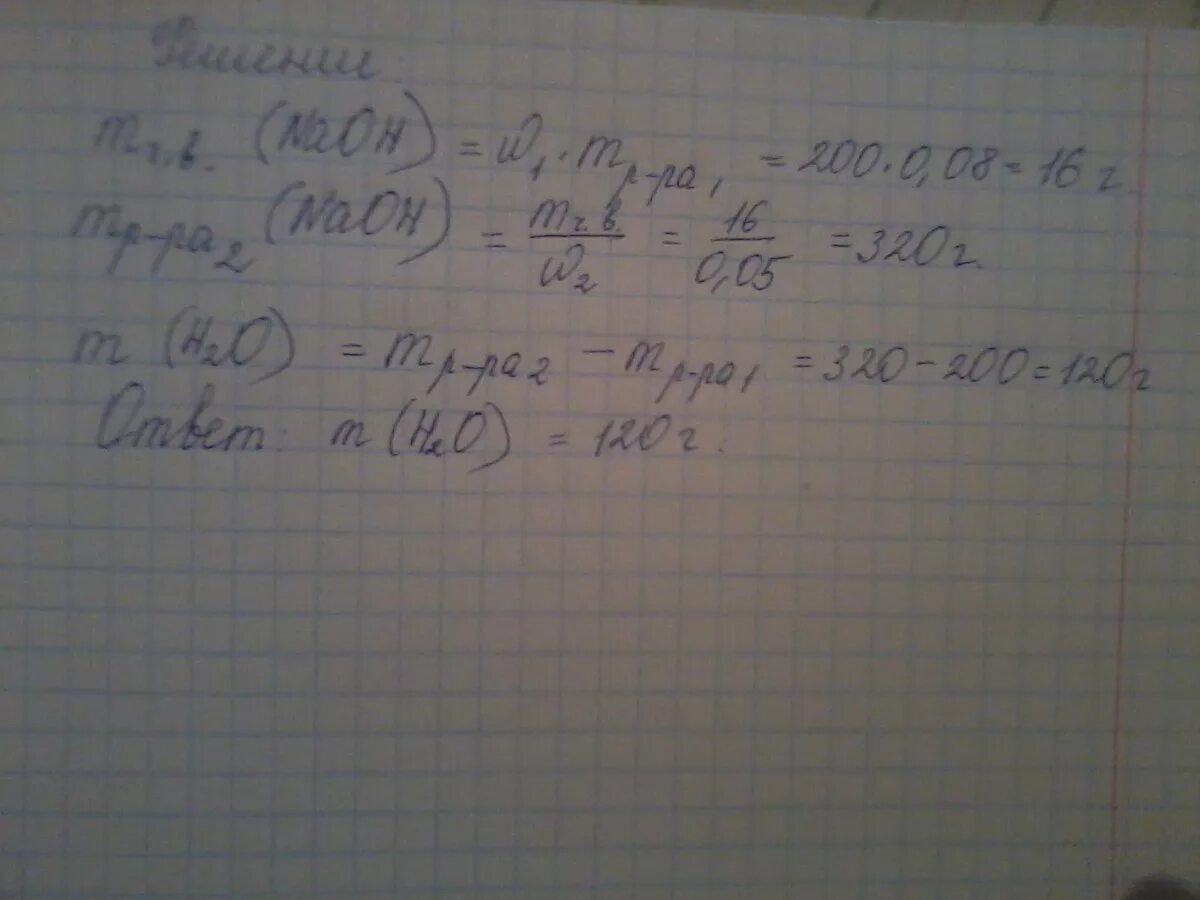 Решении
mч.в. (NaOH) = ω₁·mр-ра₁ = 200·0,08 = 16 г
mр-ра₂ (NaOH) = mч.в./ω₂ = 16/0,05 = 320 г.
m (H₂O) = mр-ра₂ – mр-ра₁ = 320 – 200 = 120 г
Ответ: m (H₂O) = 120 г.